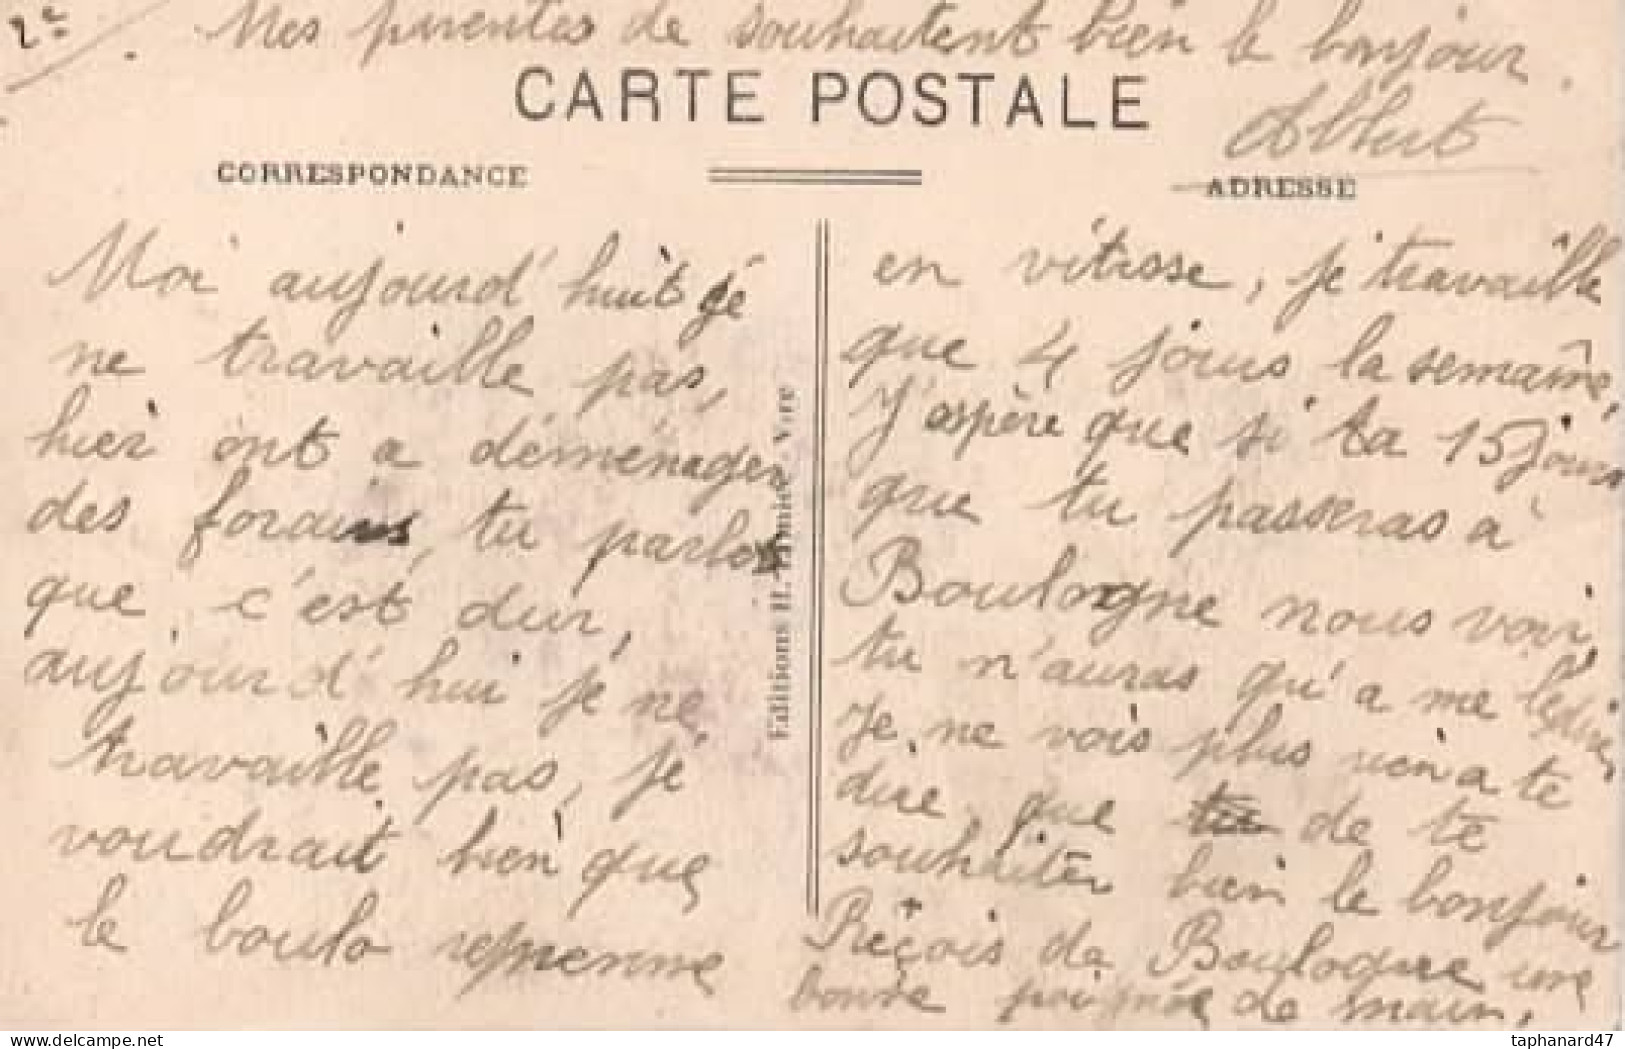 2e
Mes parentes de souhaitent bien le bonjour.
CARTE POSTALE
Albert
CORRESPONDANCE
ADRESSE
Moi aujourd'huit je
ne travaille pas,
hier ont a déménager
des forains, tu parles
que c'est dur,
aujourd'hui je ne
travaille pas, je
voudrait bien que
le boulo reprenne
Editions H. Vire
en vitesse, je travaille
que 4 jours la semaine,
J'espère que si ta 15 jours
que tu passeras à
Boulogne nous voir
tu n'auras qu'a me l'édire,
Je ne vois plus rien a te
dire que de te
souhaiter bien le bonjour
Reçois de Boulogne une
bonne poignée de main.
taphanard47